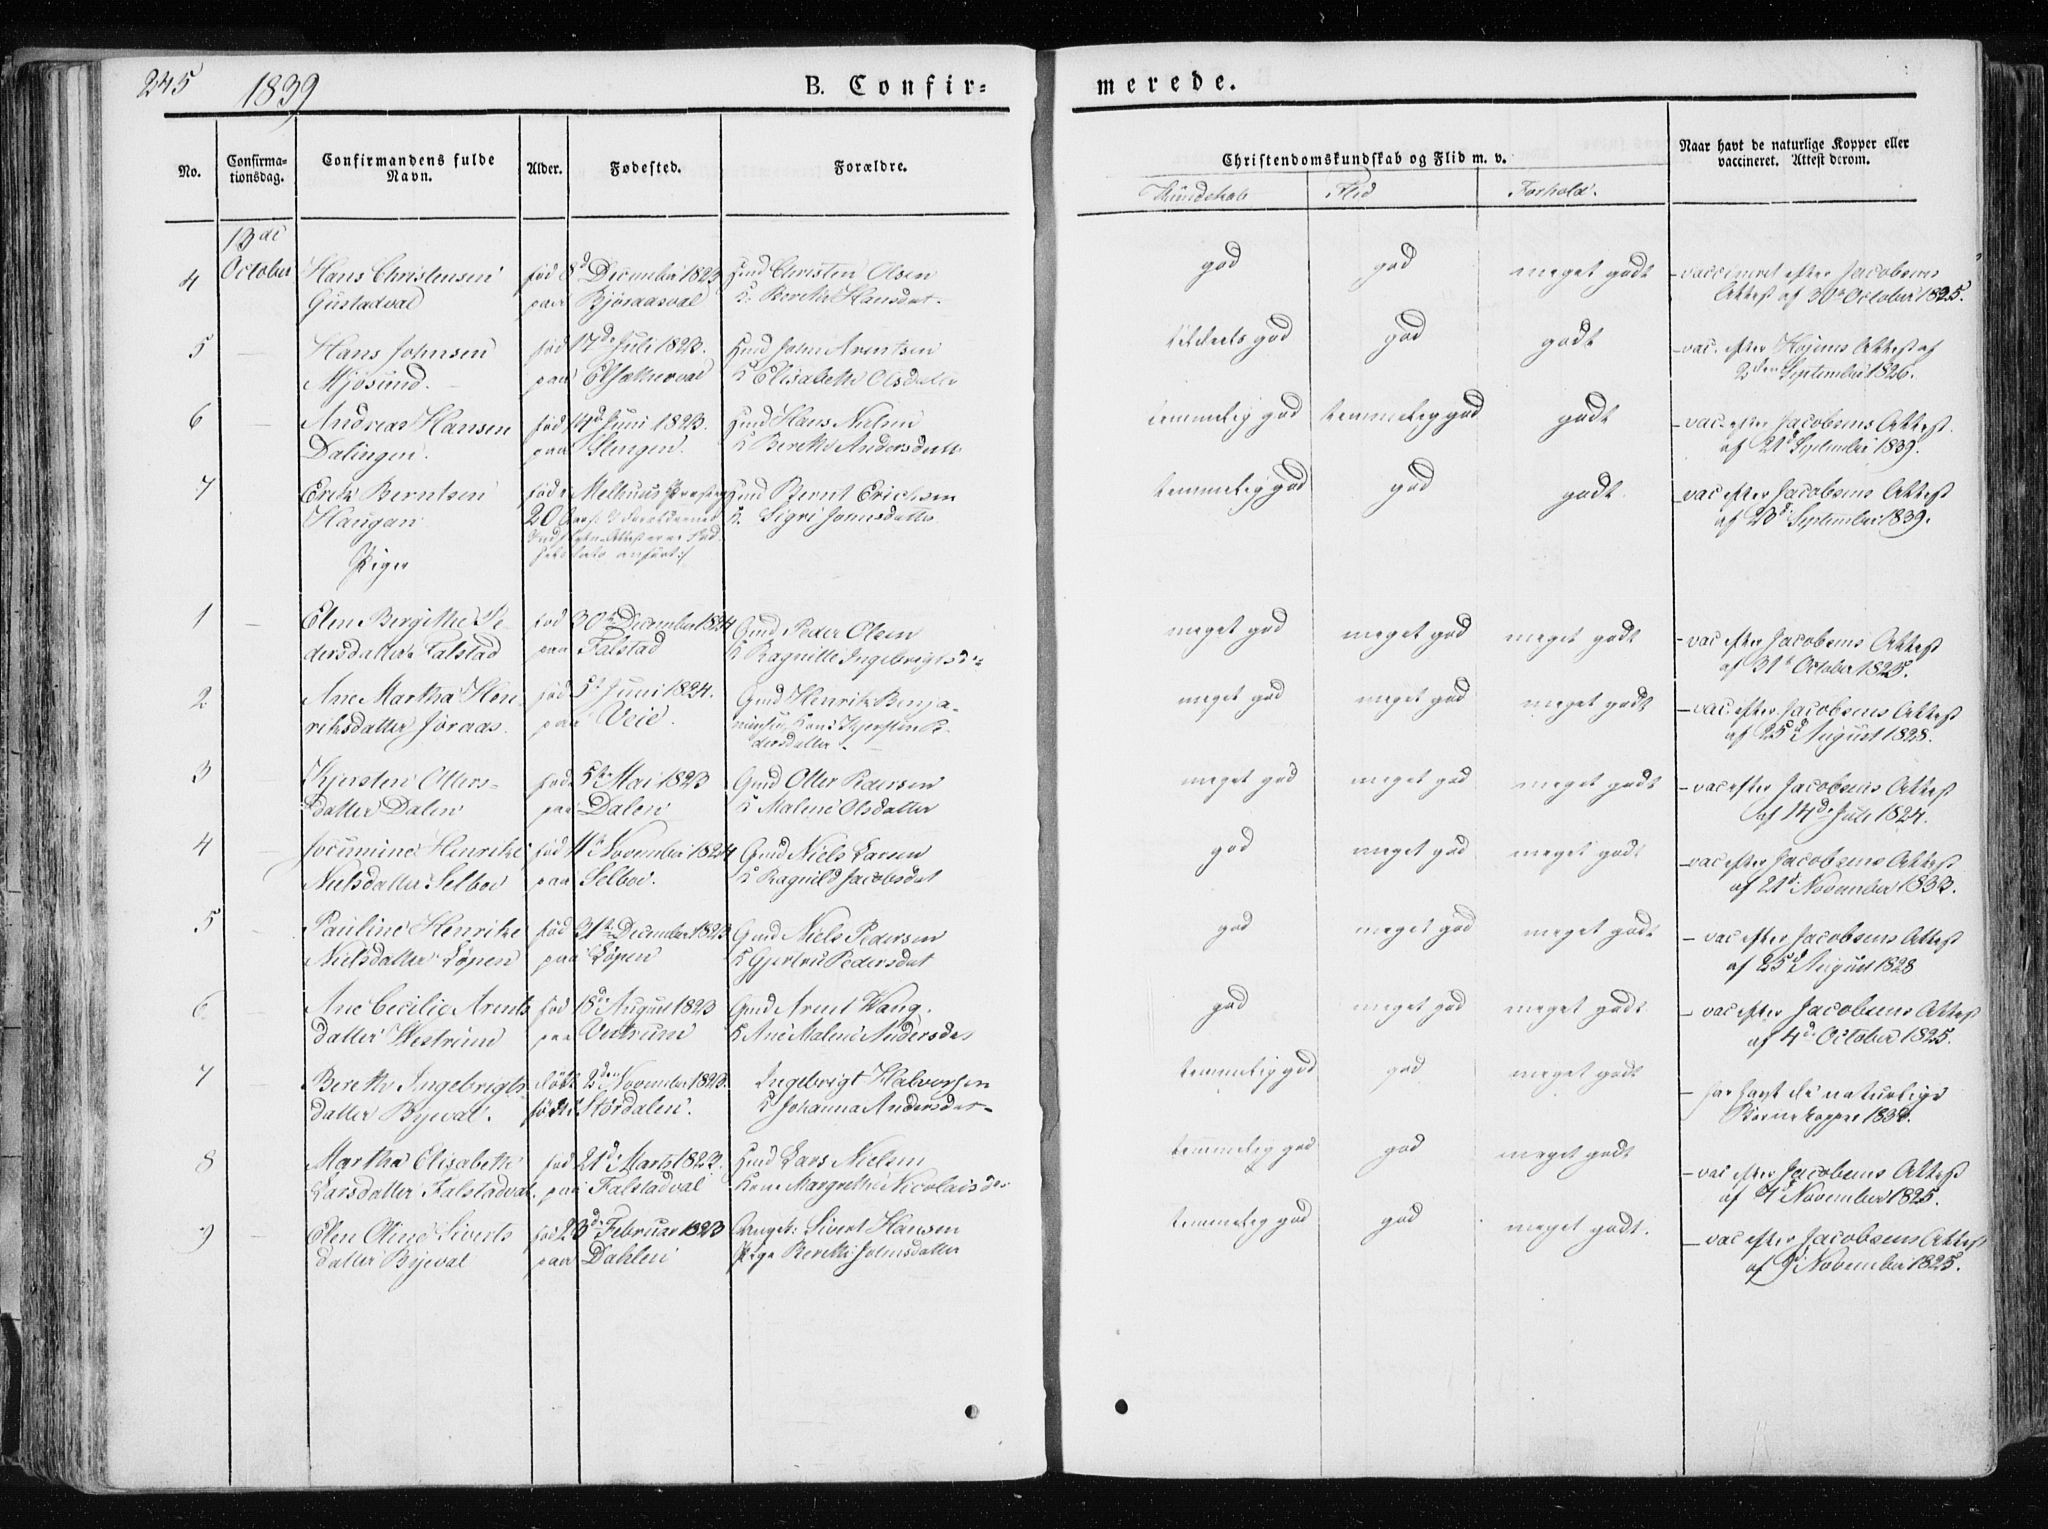 245 1839 B. Confir= merede.
No. Confirma-tionsdag. Confirmandens fulde Navn. Alder. Fødested. Forældre. Christendomskundskab og Flid m. v. Naar havt de naturlige Kopper eller vaccineret. Attest derom.
Kundskab Flid Forhold.
13de
4 October Hans Christensen fød 8d December 1823 Hmd Christen Olsen god god meget godt - vaccineret efter Jacobsens
Gustadval paa Bjøraasval K. Berethe Hansdat. Attest af 30te October 1825.
5 — Hans Johnsen fød 17de Juli 1823. Hmd John Arentsen god god godt - vac. efter Attest af
Mjøsund. paa K Elisabeth Olsdatter 2den September 1826.
6 — Andreas Hansen fød 14d Juni 1823. Hmd Hans Nielsen temmelig god temmelig god godt - vac. efter Jacobsens Attest
Dalingen. paa Slengen. K Berethe Andersdatt af 21d September 1839.
7 Erik Berntsen fød i Melhuus Hmd Bernt Erichsen temmelig god god godt. vac efter Jacobsens Attest
Haugan 20 K. Sigri Johnsdatter af 23d September 1839.
anført
Piger
1 Elen Bergithe Pe- fød 30te December 1824 Gmd Peder Olsen meget god meget god meget godt - vac efter Jacobsens Attest
dersdatter Falstad paa Falstad K Ragnille Ingebrigtsd= af 31te October 1825.
2 Ane Martha Hen- fød 5te Juni 1824. Gmd Henrik Benja- meget god meget god meget godt - vac. efter Jacobsens Attest
riksdatter Jøraas. paa Veie. minsen, Kone Kjersten Pe- af 25d August 1828.
dersdatter.
3 Kjersten Otters- fød 5te Mai 1823 Gmd Otter Pedersen meget god meget god meget godt - vac efter Jacobsens Attest
datter Dalen paa Dalen K Malene Olsdatter af 14de Juli 1824.
4 — Jocumine Henrike fød November 1824 Gmd Niels Larsen god meget god meget godt - vac efter Jacobsens Attest
Nielsdatter Selboe paa Selboe. K Ragnild Jacobsdat af 21d November 1833.
5 — Pauline Henrike fød 31te December 1823 Gmd Niels Pedersen god meget god meget godt - vac efter Jacobsens Attest
Nielsdatter Løpen paa Løpen K Gjertru Pedersdat af 25d August 1828
6 — Ane Cecilie Arents fød 18de August 1823 Gmd Arent Wang. god meget god meget godt - vac efter Jacobsens Attest
datter Westrum paa Vestrum K Ane Malene Andersdat af 4d October 1825.
7 — Bereth Ingebrigts- født 2den November 1823. Ingebrigt Halvorsen temmelig god god meget godt - har havt de naturlige
datter Byeval. født i Størdalen. K Johanna Andersdat-
8 — Martha Elisabeth fød 21d Marts 1823. Hmd Lars Nielsen temmelig god god meget godt - vac efter Jacobsens Attest
Larsdatter Falstadval. paa Falstadval Kone Margrethe Nicolaisd af November 1825.
9 — Elen Oline Siverts fød 23de Februar 1823 Sivert Hansen temmelig god god meget godt. - vac efter Jacobsens Attest
datter Byeval paa Dahlen Pige Bereth Johnsdatter af November 1825.